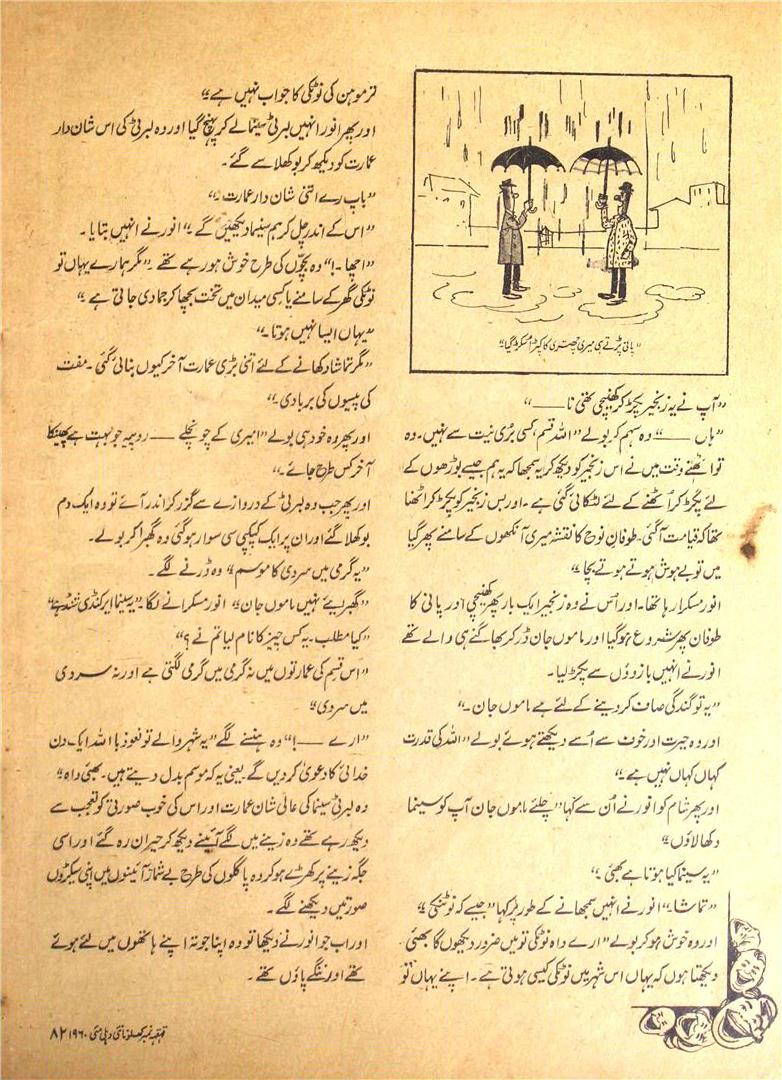 "پانی پڑتے ہی میری چھتری کا کپڑا سُکڑ گیا"
"آپ نے یہ زنجیر پکڑ کر کھینچی تھی نا ——"
"ہاں ——" وہ سہم کر بولے "اللہ قسم، کسی بڑی نیت سے نہیں۔ وہ
تو اٹھتے وقت میں نے اس زنجیر کو دیکھ کر یہ سمجھا کہ یہ ہم جیسے بوڑھوں کے
لئے پکڑ کر اُٹھنے کے لئے لٹکائی گئی ہے۔ اور بس زنجیر کو پکڑ کر اٹھنا
تھا کہ قیامت آگئی۔ طوفانِ نوح کا نقشہ میری آنکھوں کے سامنے پھر گیا
میں تو بے ہوش ہوتے ہوتے بچا"
انور مسکرا رہا تھا۔ اور اُس نے وہ زنجیر ایک بار پھر کھینچی اور پانی کا
طوفان پھر شروع ہوگیا اور ماموں جان ڈر کر بھاگنے ہی والے تھے
انور نے انہیں بازوؤں سے پکڑ لیا۔
"یہ تو گندگی صاف کر دینے کے لئے ہے ماموں جان۔"
اور وہ حیرت اور خوف سے اُسے دیکھتے ہوئے بولے "اللہ کی قدرت
کہاں کہاں نہیں ہے۔"
اور پھر شام کو انور نے اُن سے کہا "چلئے ماموں جان آپ کو سینما
دکھا لاؤں"
"یہ سینما کیا ہوتا ہے بھئی۔"
"تماشا۔" انور نے انہیں سمجھانے کے طور پر کہا "جیسے کہ نوٹنکی"
اور وہ خوش ہو کر بولے "ارے واہ نوٹنکی تو میں ضرور دیکھوں گا بھئی
دیکھتا ہوں کہ یہاں اس شہر میں نوٹنکی کیسی ہوتی ہے۔ اپنے یہاں تو
ترموہن کی نوٹنکی کا جواب نہیں ہے"
اور پھر انور انہیں لبرٹی سینما لے کر پہنچ گیا اور وہ لبرٹی کی اس شان دار
عمارت کو دیکھ کر بوکھلا سے گئے۔
"باپ رے اتنی شان دار عمارت۔"
"اس کے اندر چل کر ہم سینما دیکھیں گے۔" انور نے انہیں بتایا۔
"اچھا۔!" وہ بچّوں کی طرح خوش ہو رہے تھے۔ "مگر ہمارے یہاں تو
نوٹنکی گھر کے سامنے یا کسی میدان میں تخت بچھا کر جما دی جاتی ہے"
"یہاں ایسا نہیں ہوتا۔"
"مگر تماشا دکھانے کے لئے اتنی بڑی عمارت آخر کیوں بنائی گئی۔ مفت
کی پیسوں کی بربادی۔"
اور پھر وہ خود ہی بولے "امیری کے چونچلے —— روپیہ جو بہت ہے پھینکا
آخر کس طرح جائے۔"
اور پھر جب وہ لبرٹی کے دروازے سے گزر کر اندر آئے تو وہ ایک دم
بوکھلا گئے اور ان پر ایک کپکپی سی سوار ہو گئی وہ گھبرا کر بولے۔
"یہ گرمی میں سردی کا موسم" وہ ڈرنے لگے۔
"گھبرایئے نہیں ماموں جان" انور مسکرانے لگا "یہ سینما ایرکنڈی شنڈ ہے"
"کیا مطلب۔ یہ کس چیز کا نام لیا تم نے؟"
"اس قسم کی عمارتوں میں نہ گرمی میں گرمی لگتی ہے اور نہ سردی
میں سردی"
"ارے ——!" وہ ہنسنے لگے "یہ شہر والے تو نعوذ باللہ ایک دن
خدائی کا دعویٰ کر دیں گے۔ یعنی یہ کہ موسم بدل دیتے ہیں۔ بھئی واہ"
وہ لبرٹی سینما کی عالی شان عمارت اور اس کی خوب صورتی کو تعجب سے
دیکھ رہے تھے وہ زینے میں لگے آئینے دیکھ کر حیران رہ گئے اور اسی
جگہ زینے پر کھڑے ہو کر وہ پاگلوں کی طرح بے شمار آئینوں میں اپنی سیکڑوں
صورتیں دیکھنے لگے۔
اور اب جو انور نے دیکھا تو وہ اپنا جوتہ اپنے ہاتھوں میں لئے ہوئے
تھے اور ننگے پاؤں تھے۔
قہقہہ نمبر کھلونا نئی دہلی مئی ۱۹۶۰ ۸۲